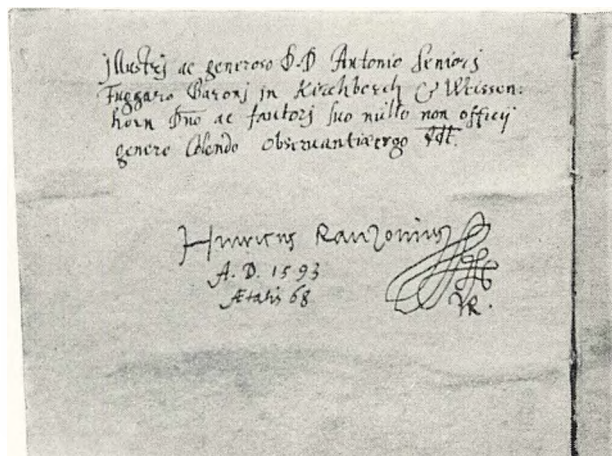 Jllustrj ac generoso D.D Antonio Seniorj
Fuggaro Baronj jn Kirchberch & Weissen:
horn Dno ac fautorj suo nullo non officij
genere Colendo Observantiæ ergo ddt.
Henricus Ranzonius
A. D. 1593
Ætatis 68